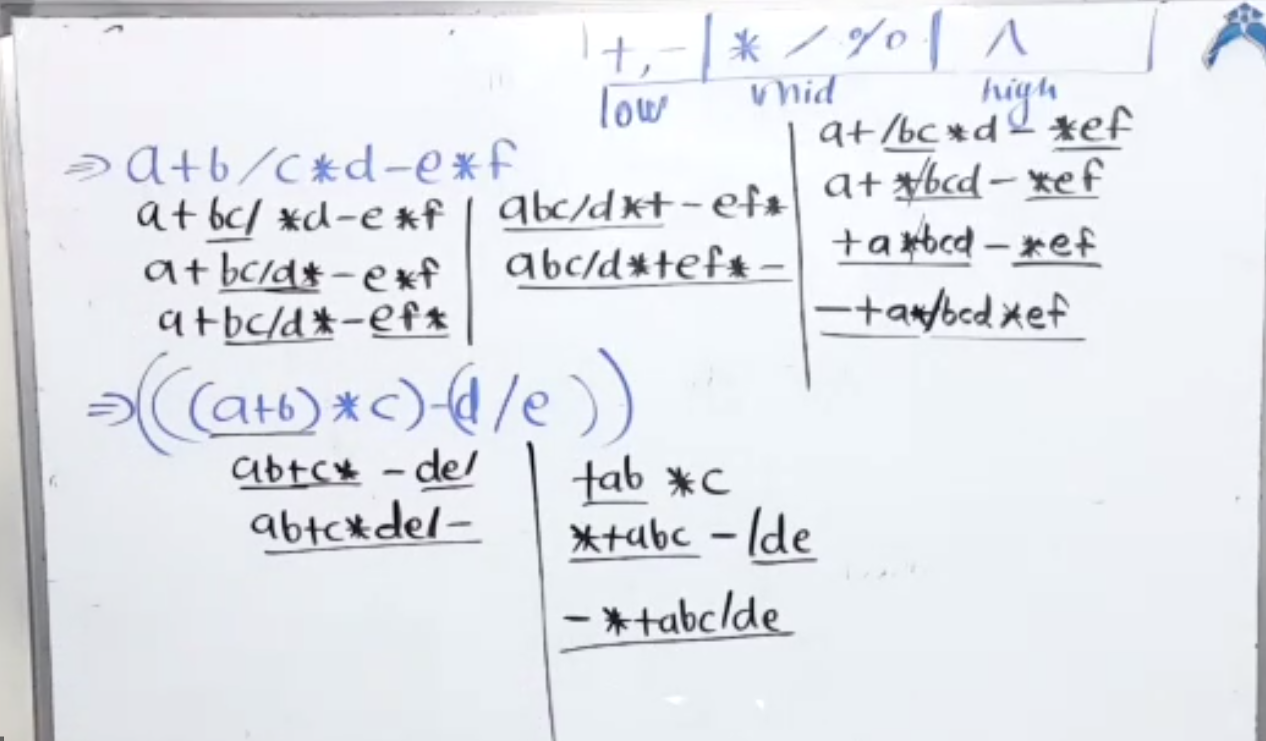 +,- | * / % | ^
low mid high
⇒ a+b/c*d-e*f
a+bc/ *d-e*f
a+bc/d*-e*f
a+bc/d*-ef*
abc/d*+-ef*
abc/d*+ef*-
a+/bc*d-*ef
a+*/bcd-*ef
+a*/bcd-*ef
-+a*/bcd*ef
⇒(((a+b)*c)-(d/e))
ab+c* -de/
ab+c*de/-
+ab *c
*+abc -/de
-*+abc/de